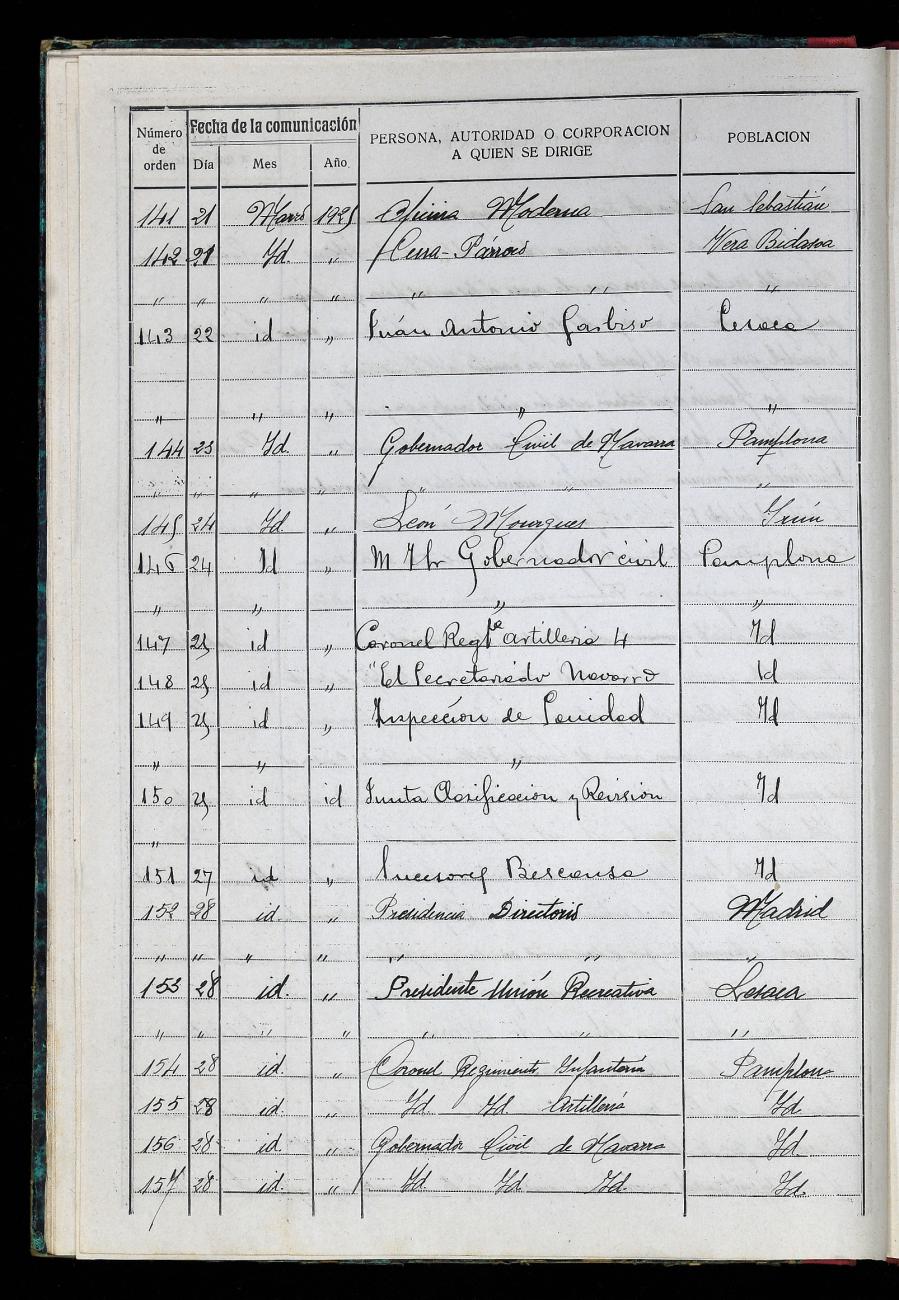 Número de orden Fecha de la comunicación PERSONA, AUTORIDAD O CORPORACION A QUIEN SE DIRIGE POBLACION
Día Mes Año
141 21 Marzo 1925 Oficina Moderna San Sebastián
142 21 Id. " Vera Bidasoa
" " " " " " "
143 22 id " Juán Antonio Garbiso Lesaca
" " " " "
144 23 Id. " Gobernador Civil de Navarra Pamplona
" " " " " " "
145 24 Id. " León Mourgues Irún
146 24 Id " Gobernador civil Pamplona
" " " "
147 25 id " Coronel Regto Artilleria 4 Id
148 25 id " "El Secretariado Navarro Id
149 25 id " Inspección de Sanidad Id
" " "
150 25 id id Junta Clasificacion y Revision Id
"
151 27 id " Sucesores Bescansa Id
152 28 id. " Presidencia Directorio Madrid
" " " " " " "
153 28 id. " Presidente Unión Recreativa Lesaca
" " " " " " "
154 28 id. " Coronel Regimiento Infantería Pamplona
155 28 id. " Id Id Artillería Id.
156 28 id. " Gobernador Civil de Navarra Id.
157 28 id. " Id. Id. Id. Id.